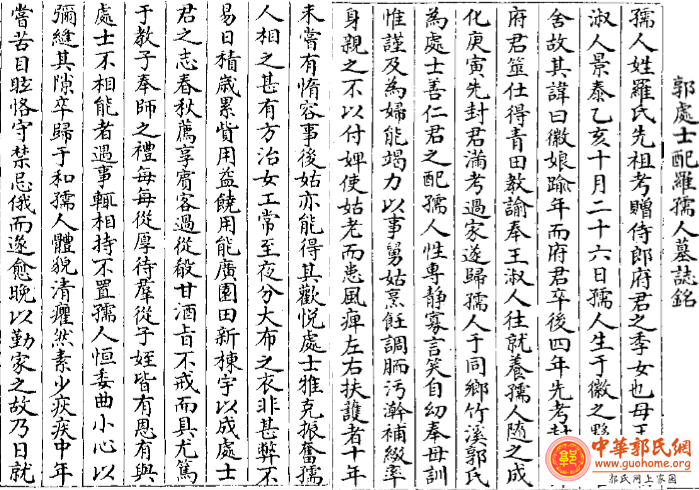 郭處士配羅孺人墓誌銘
孺人姓羅氏先祖考贈侍郎府君之季女也母王
淑人景泰乙亥十月二十六日孺人生于徽之黟
舍故其諱曰徽娘踰年而府君卒後四年先考封
府君筮仕得青田教諭奉王淑人往就養孺人随之成
化庚寅先封君滿考過家遂歸孺人于同鄉竹溪郭氏
為處士善仁君之配孺人性專静寡言笑自幼奉母訓
惟謹及為婦能竭力以事舅姑烹飪調胹污澣補綴率
身親之不以付婢使姑老而患風痺左右扶護者十年
未嘗有惰容事後姑亦能得其歡悅處士雅克振奮孺
人相之甚有方治女工常至夜分大布之衣非甚弊不
易日積歲累貲用益饒用能廣園田新棟宇以成處士
君之志春秋薦享賓客過從殽甘酒旨不戒而具尤篤
于教子奉師之禮每每從厚待羣從子姪皆有恩有與
處士不相能者遇事輒相持不置孺人恒委曲小心以
彌縫其隙卒歸于和孺人體貌清癯然素少疾疢中年
嘗苦目眩恪守禁忌俄而遂愈晚以勤家之故乃日就
中華郭氏網
www.guohome.org
郭氏网上家園